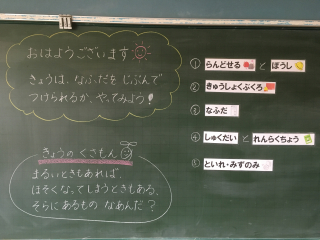 おはようございます
きょうは、なふだを じぶんで
つけられるか、やってみよう!
きょうの くさもん
まるいときもあれば、
ほそくなってしまうときもある、
そらにあるもの なあんだ?
① らんどせる と ぼうし
② きゅうしょくぶくろ
③ なふだ
④ しゅくだい と れんらくちょう
⑤ といれ・みずのみ